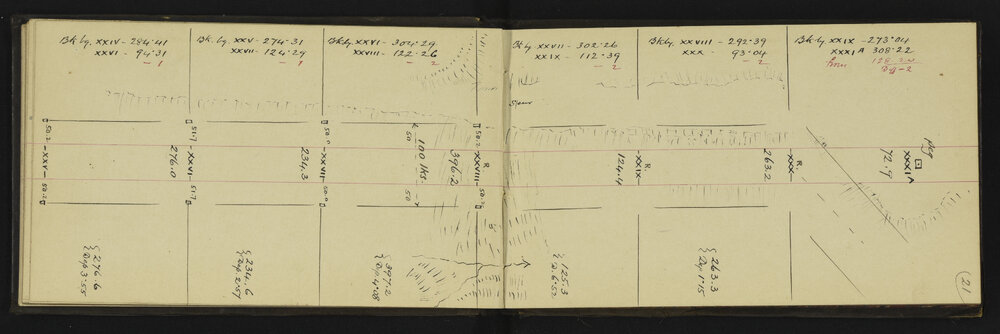 Bk. by. XXIV - 284.41
XXVI - 94.31
- 1
Bk. by. XXV - 274.31
XXVII - 124.29
- 1
Bk by. XXVI - 304.29
XXVIII - 122.26
- 2
Bk by. XXVII - 302.26
XXIX - 112.39
- 2
Bk by. XXVIII - 292.39
XXX - 93.04
- 2
Bk by XXIX - 273.04
XXXIA 308.22
Spur
50.2 - XXV - 50.2
276.0
51.7 - XXVI - 51.7
234.3
50.0 - XXVII - 50.0
50
100 lks.
50
396.2
50.2 - XXVIII - 50.2
R
124.4
R
XXIX
263.2
R
XXX
72.9
XXXIA
peg
276.6
Dep 3.55
234.6
Dep 2.57
397.2
Dep 4.08
125.3
D. 6.52
263.3
Dep 1.15
(21)